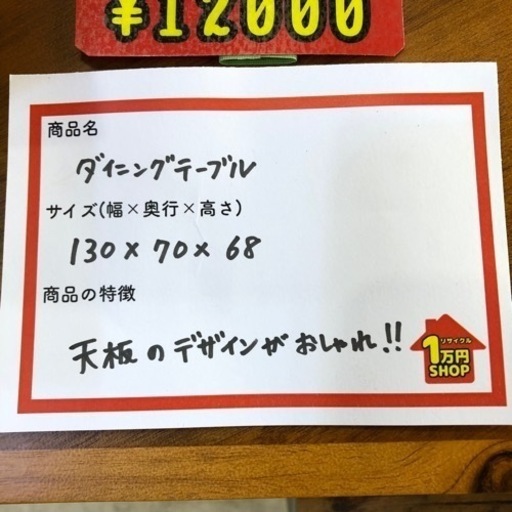 ¥12000
商品名
ダイニングテーブル
サイズ(幅×奥行×高さ)
130×70×68
商品の特徴
天板のデザインがおしゃれ!!
リサイクル
1万円
SHOP